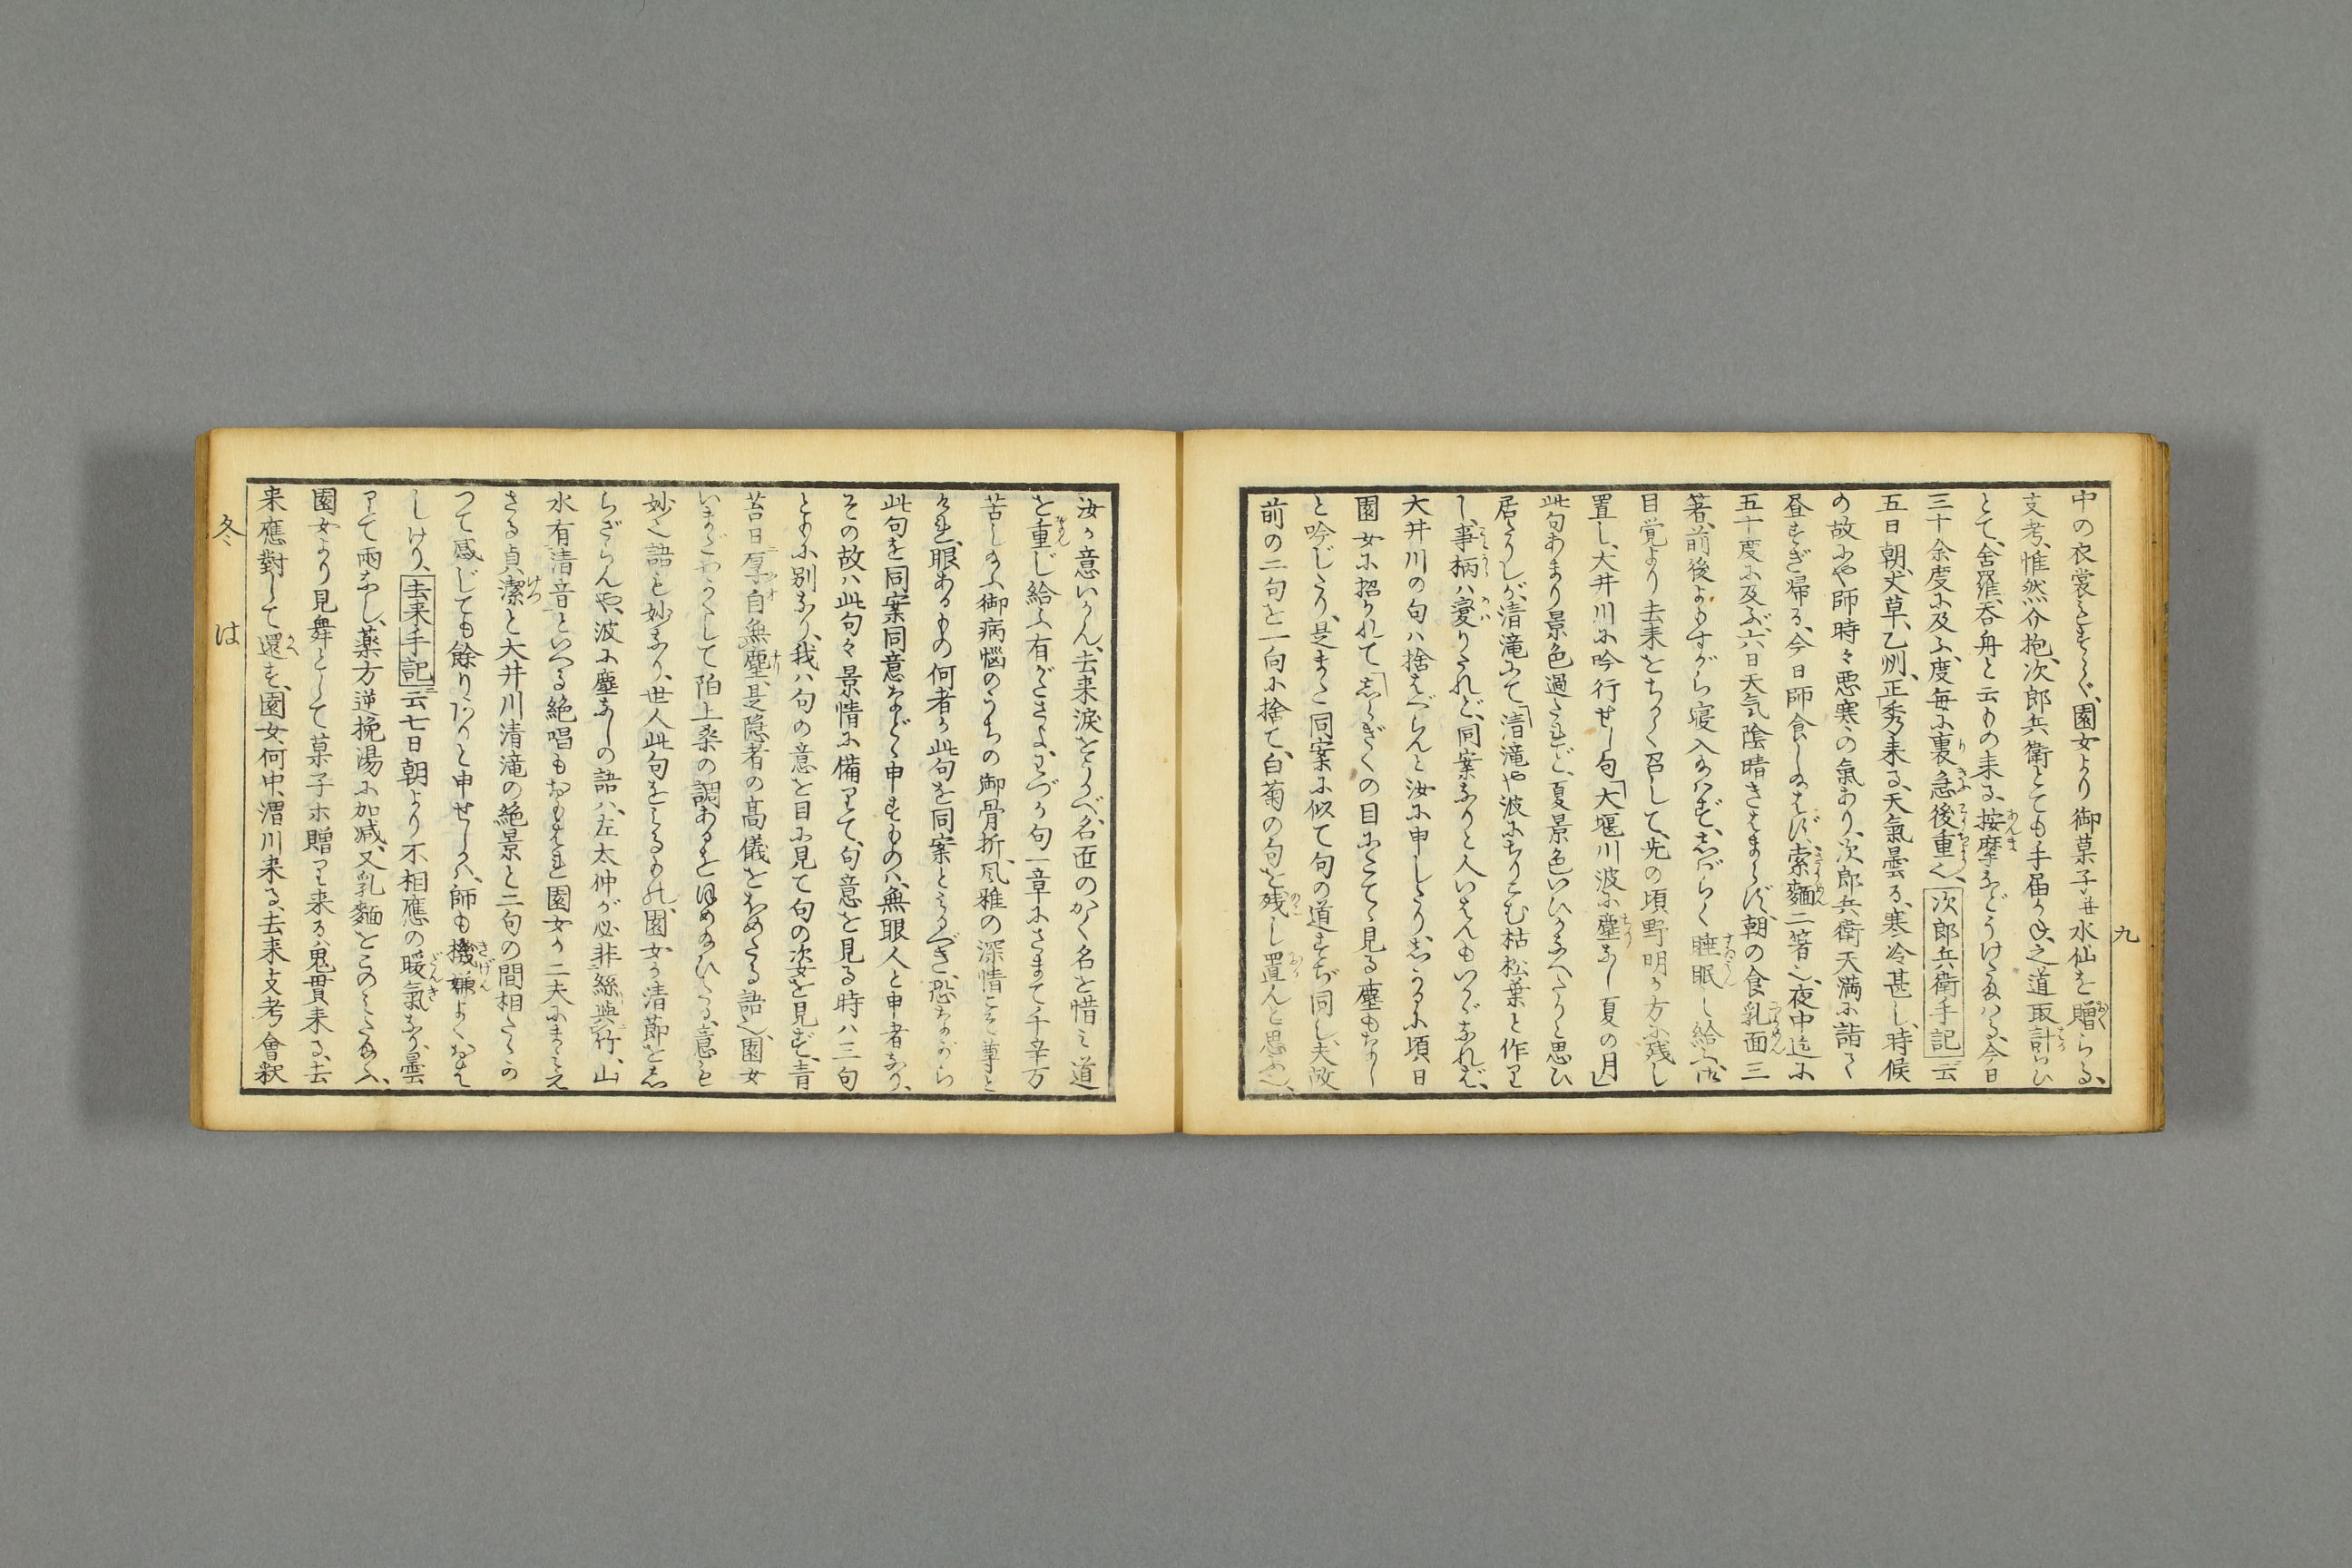 九
中の衣裳をすゝぐ、園女より御菓子并水仙を贈らる、
支考、惟然介抱、次郎兵衛とても手届かね、之道取計らひ
とて、舎羅、呑舟と云もの来る、按摩などうけたまはる、今日
三十余度に及ふ、度毎に裏急後重也、次郎兵衛手記云
五日朝、丈草、乙州、正秀来る、天氣曇る、寒冷甚し、時候
の故にや師時々悪寒の氣あり、次郎兵衛天満に詣で
昼すぎ帰る、今日師食し給はず、索麺二箸也、夜中迄に
五十度に及ぶ、六日天気陰晴きはまらず、朝の食乳面三
箸、前後よもすがら寝入給はず、しばらく睡眠し給ふ、御
目覚より去来をちかく召して、先の頃野明が方に残し
置し、大井川に吟行せし句「大堰川波に塵なし夏の月」
此句あまり景色過たれど、夏景色いひかなへたりと思ひ
居たりしが、清滝にて「清滝や波にちりこむ松葉と作り
し、事柄ハ変りたれど、同案なりと人いはんもいぐなれば、
大井川の句ハ捨はべらんと汝に申したり、しかるに頃日
園女に招かれて「しらぎくの目にたてゝ見る塵もなし
と吟じたり、是また同案に似て句の道すぢ同し、夫故
前の二句を一向に捨て、白菊の句を残し置んと思ふ也、
汝が意いかん、去来涙をうかべ、名匠のかく名を惜み道
を重じ給ふ有がたさよ、わづか句一章にさまて千辛万
苦し給ふ御病悩のうちの御骨折、風雅の深情こそ尊と
けれ、眼あるもの何者か此句を同案とみるべき、恐ながら
此句を同案同意などゝ申すものハ、無眼人と申者なり、
その故ハ此句々景情に備りて、句意を見る時ハ三句
ともに別なり、我ハ句の意を目に見て句の姿を見ず、青
苔日厚自無塵、是隠者の高儀をほめたる語也、園女
いまだわかくして陌上桑の調あるをほめ給ひたる、意も
妙也語も妙なり、世人此句をみるもの、園女が清節をし
らざらんや、波に塵なしの語ハ、左太仲が必非絲與竹、山
水有清音といへる絶唱もおもはれ園女が二夫にまみえ
ざる貞潔と大井川清滝の絶景と二句の間相たゝかつ
つて感じても餘りありと申せしかハ、師も機嫌よくおはせ
しけり、去来手記云七日朝より不相應の暖氣なり、曇
りて雨なし、薬方逆挽湯に加減、又乳麺をこのみたまふ、
園女より見舞として菓子ホ贈り来る、鬼貫来る、去
来應對して還す、園女、何中、渭川来る、去来支考會釈
冬　は